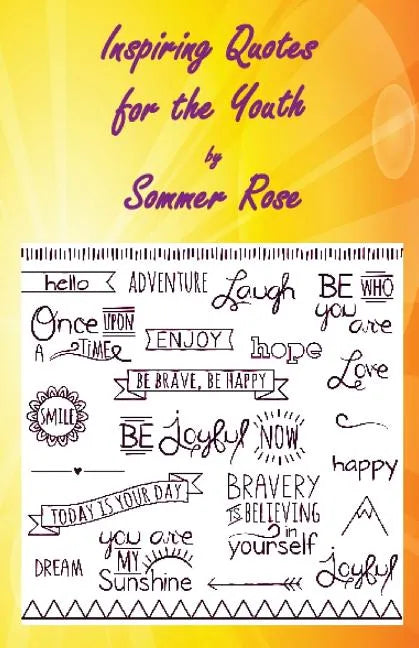 Inspiring Quotes
for the Youth
by
Sommer Rose
hello
ADVENTURE
Laugh
BE WHO
you are
Once UPON
A TIME
ENJOY
hope
Love
BE BRAVE, BE HAPPY
SMILE
BE Joyful NOW
happy
TODAY IS YOUR DAY
BRAVERY
IS BELIEVING
in
yourself
you are
MY
Sunshine
DREAM
Joyful